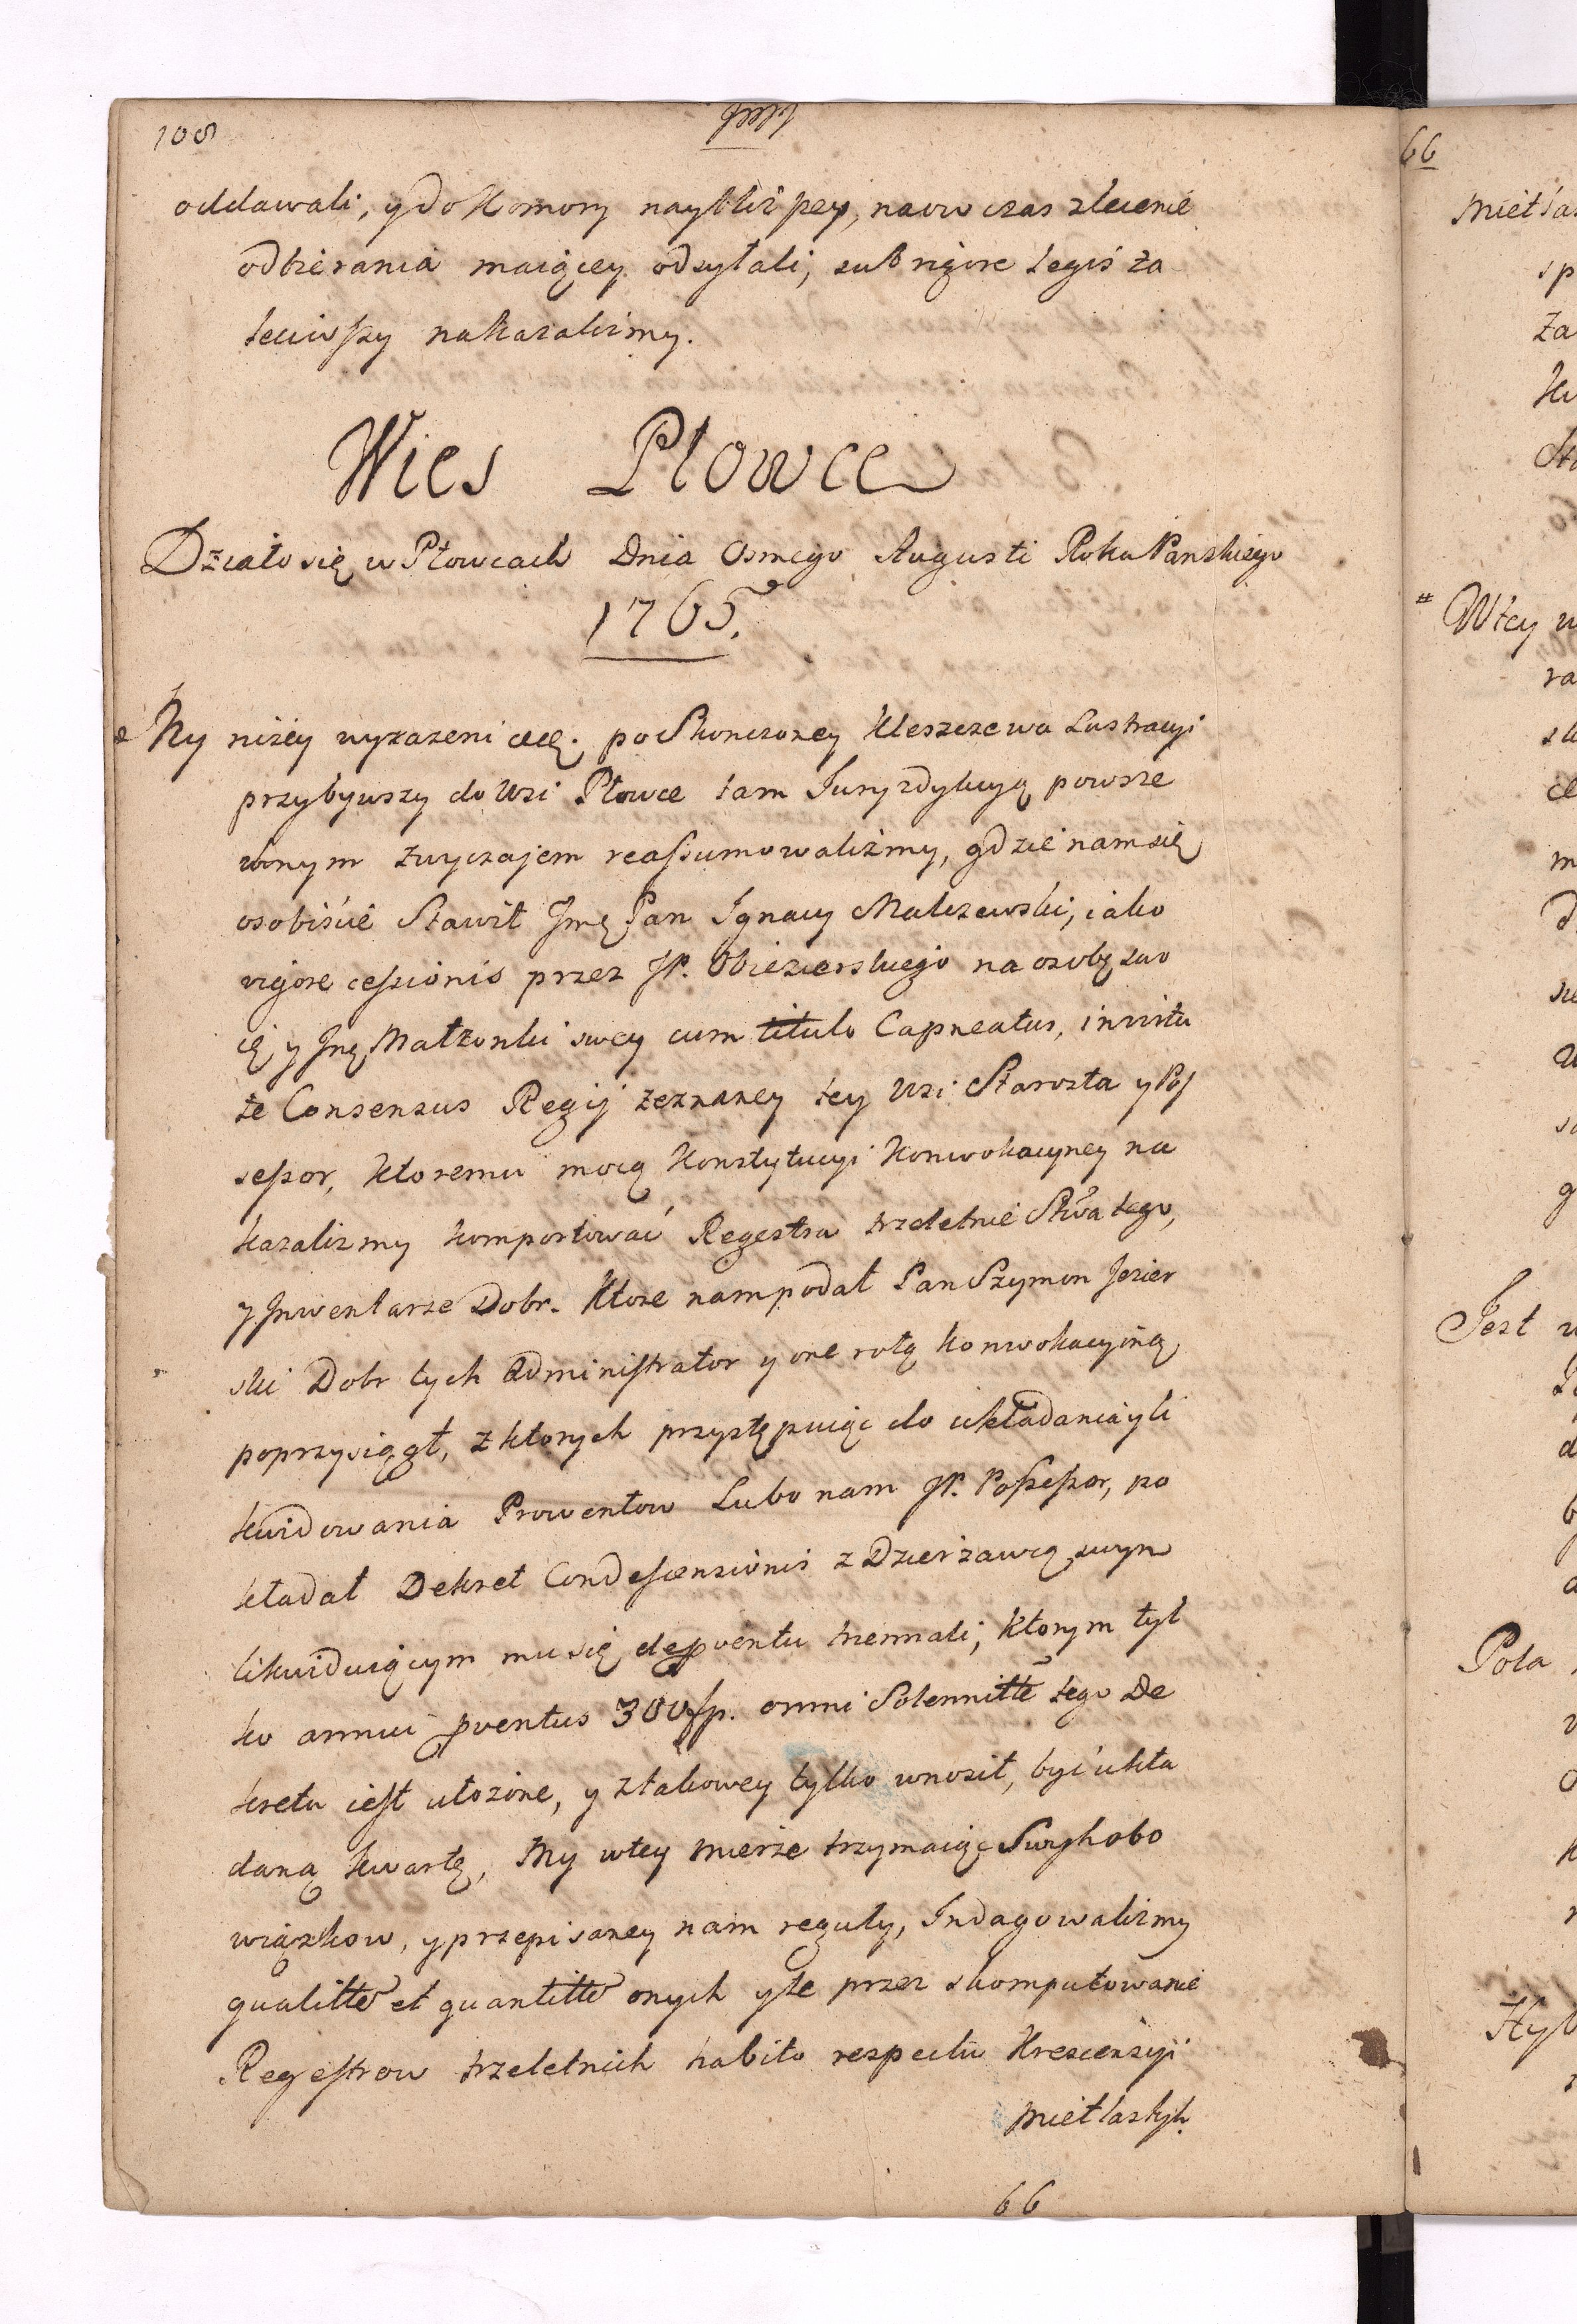 108
oddawali, y do Komory naybliższey, naowczas zlecenie
odbierania maiącey odsyłali, sub rigore legis za
leciwszy nakazalismy.
Wies Płowce
Działo się w Płowcach Dnia Osmego Augusti Roku Panskiego
1765.
My niżey wyrazeni etc. po Skonczoney Kleszczewa Lustracyi
przybywszy do Wsi Płowce tam Juryzdykcyą powsze
wnym zwyczajem reassumowalismy, gdzie nam się
osobiście Stawił Jmę Pan Ignacy Malczewski, iako
vigore cessionis przez JP. Obiezierskiego na osobę swo
ię y Jmę Małżonki swey cum titulo Capneatus, in virtu
te Consensus Regij zeznaney tey Wsi Starosta y Pos
sessor, ktoremu mocą Konstytucyi Konwokacyney na
kazalismy komportować Regestra trzeletnie Stwa tego,
y Jnwentarze Dobr. Ktore nam podał Pan Szymon Jezier
ski Dobr tych Administrator y one rotą konwokacyiną
poprzysiągł, z ktorych przystępuiąc do układania y li
kwidowania Prowentow Lubo nam JP. Possessor, po
kładał Dekret Condescensionis z Dzierżawcą swym
likwiduiącym mu się de pventu triennali, ktorym tyl
ko annui pventus 300 fp. omni Solennitte tego De
kretu iest ułożone, y z takowey tylko wnosił, być ukła
daną kwartę, My w tey mierze trzymaiąc Swych obo
wiązkow, y przepisaney nam reguły, Indagowalismy
qualitte et quantitte onych y te przez skomputowanie
Regestrow trzeletnich habito respectu Krescensyi
Mietlaskych.
66
66